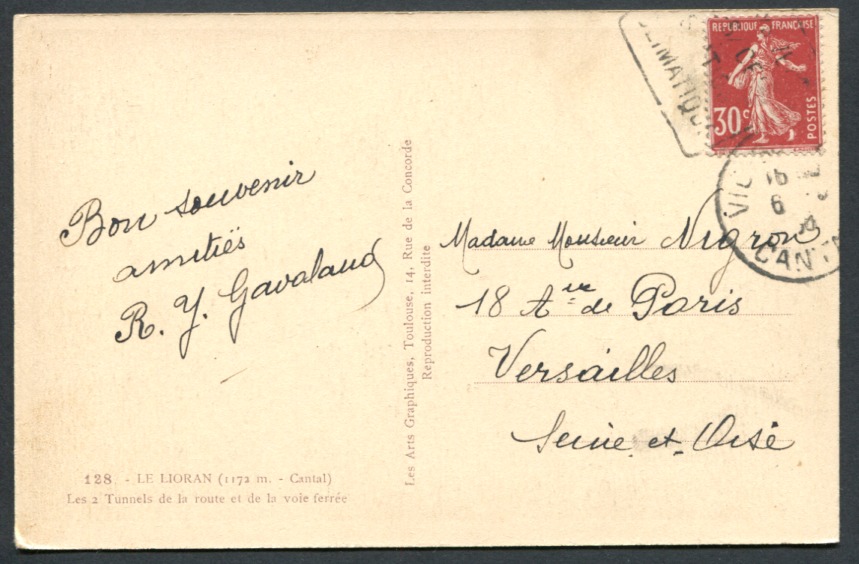 Bon souvenir
amitiés
R. Y. Gavaland
128. - LE LIORAN (1172 m. - Cantal)
Les 2 Tunnels de la route et de la voie ferrée
Les Arts Graphiques, Toulouse, 14, Rue de la Concorde
Reproduction interdite
REPUBLIQUE FRANÇAISE
30c
POSTES
CLIMATIQUE
VIC
16
6
CANTAL
Madame Monsieur Nigron
18 Aue de Paris
Versailles
Seine et Oise